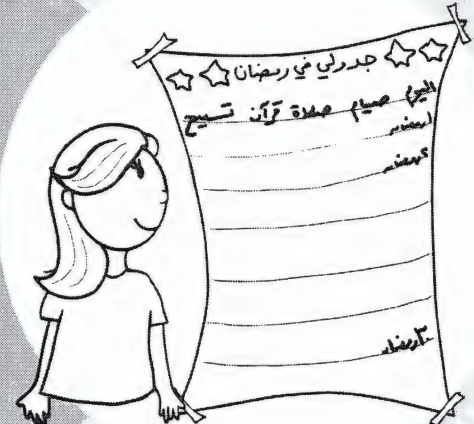 جدولي في رمضان
اليوم صيام صلاة قرآن تسبيح
١ رمضان
٢ رمضان
٣٠ رمضان